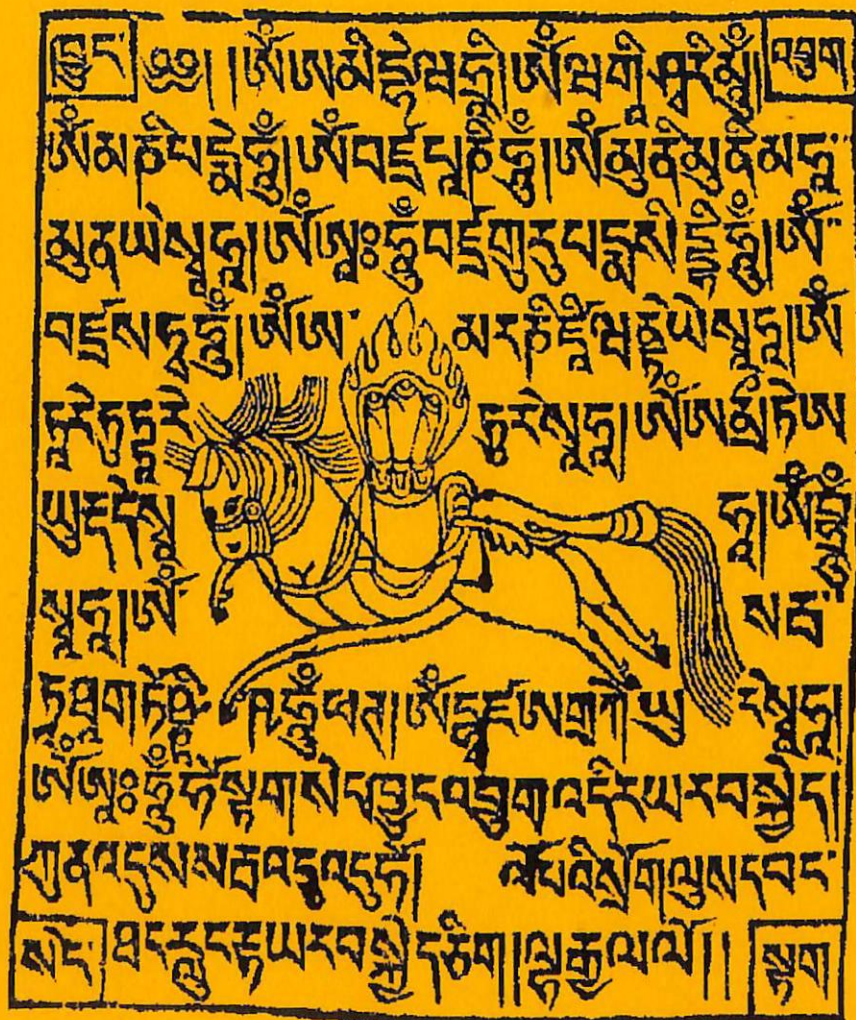 ཁྱུང་ ༄༅། །ཨོཾ་ཨ་མི་དྷེ་ཝ་ཧྲཱི། འབྲུག
ཨོཾ་མ་ཎི་པདྨེ་ཧཱུྃ། ཨོཾ་བཛྲ་པཱ་ཎི་ཧཱུྃ། ཨོཾ་མུ་ནི་མུ་ནི་མ་ཧཱ་
མུ་ན་ཡེ་སྭཱ་ཧཱ། ཨོཾ་ཨཱཿ་ཧཱུྃ་བཛྲ་གུ་རུ་པདྨ་སིདྡྷི་ཧཱུྃ། ཨོཾ་
བཛྲ་སཏྭ་ཧཱུྃ། ཨོཾ་ཨ་ མ་ར་ཎི་ཛཱི་ཝན་ཏེ་ཡེ་སྭཱ་ཧཱ། ཨོཾ་
ཏཱ་རེ་ཏུཏྟཱ་རེ་ ཏུ་རེ་སྭཱ་ཧཱ། ཨོཾ་ཨ་མྲྀ་ཏེ་ཨ་
ཡུར་ད་དེ་སྭཱ་ ཧཱ། ཨོཾ་བྷྲཱུྃ་
སྭཱ་ཧཱ། ཨོཾ་ སརྦ་
ཏ་ཐཱ་ག་ཏོ་ ཧཱུྃ་ཕཊ།
ཨོཾ་ཨཱཿ་ཧཱུྃ་ཧོ་སྟག་སེང་ཁྱུང་འབྲུག་འདིར་ཡར་བསྐྱེད།
ཀུན་འདུས་སརྦ་འདུ་འདུ་ཧོ། སྲོག་ལུས་དབང་
སེང་ ཐང་རླུང་རྟ་ཡར་བསྐྱེད་ཅིག །ལྷ་རྒྱལ་ལོ།། སྟག